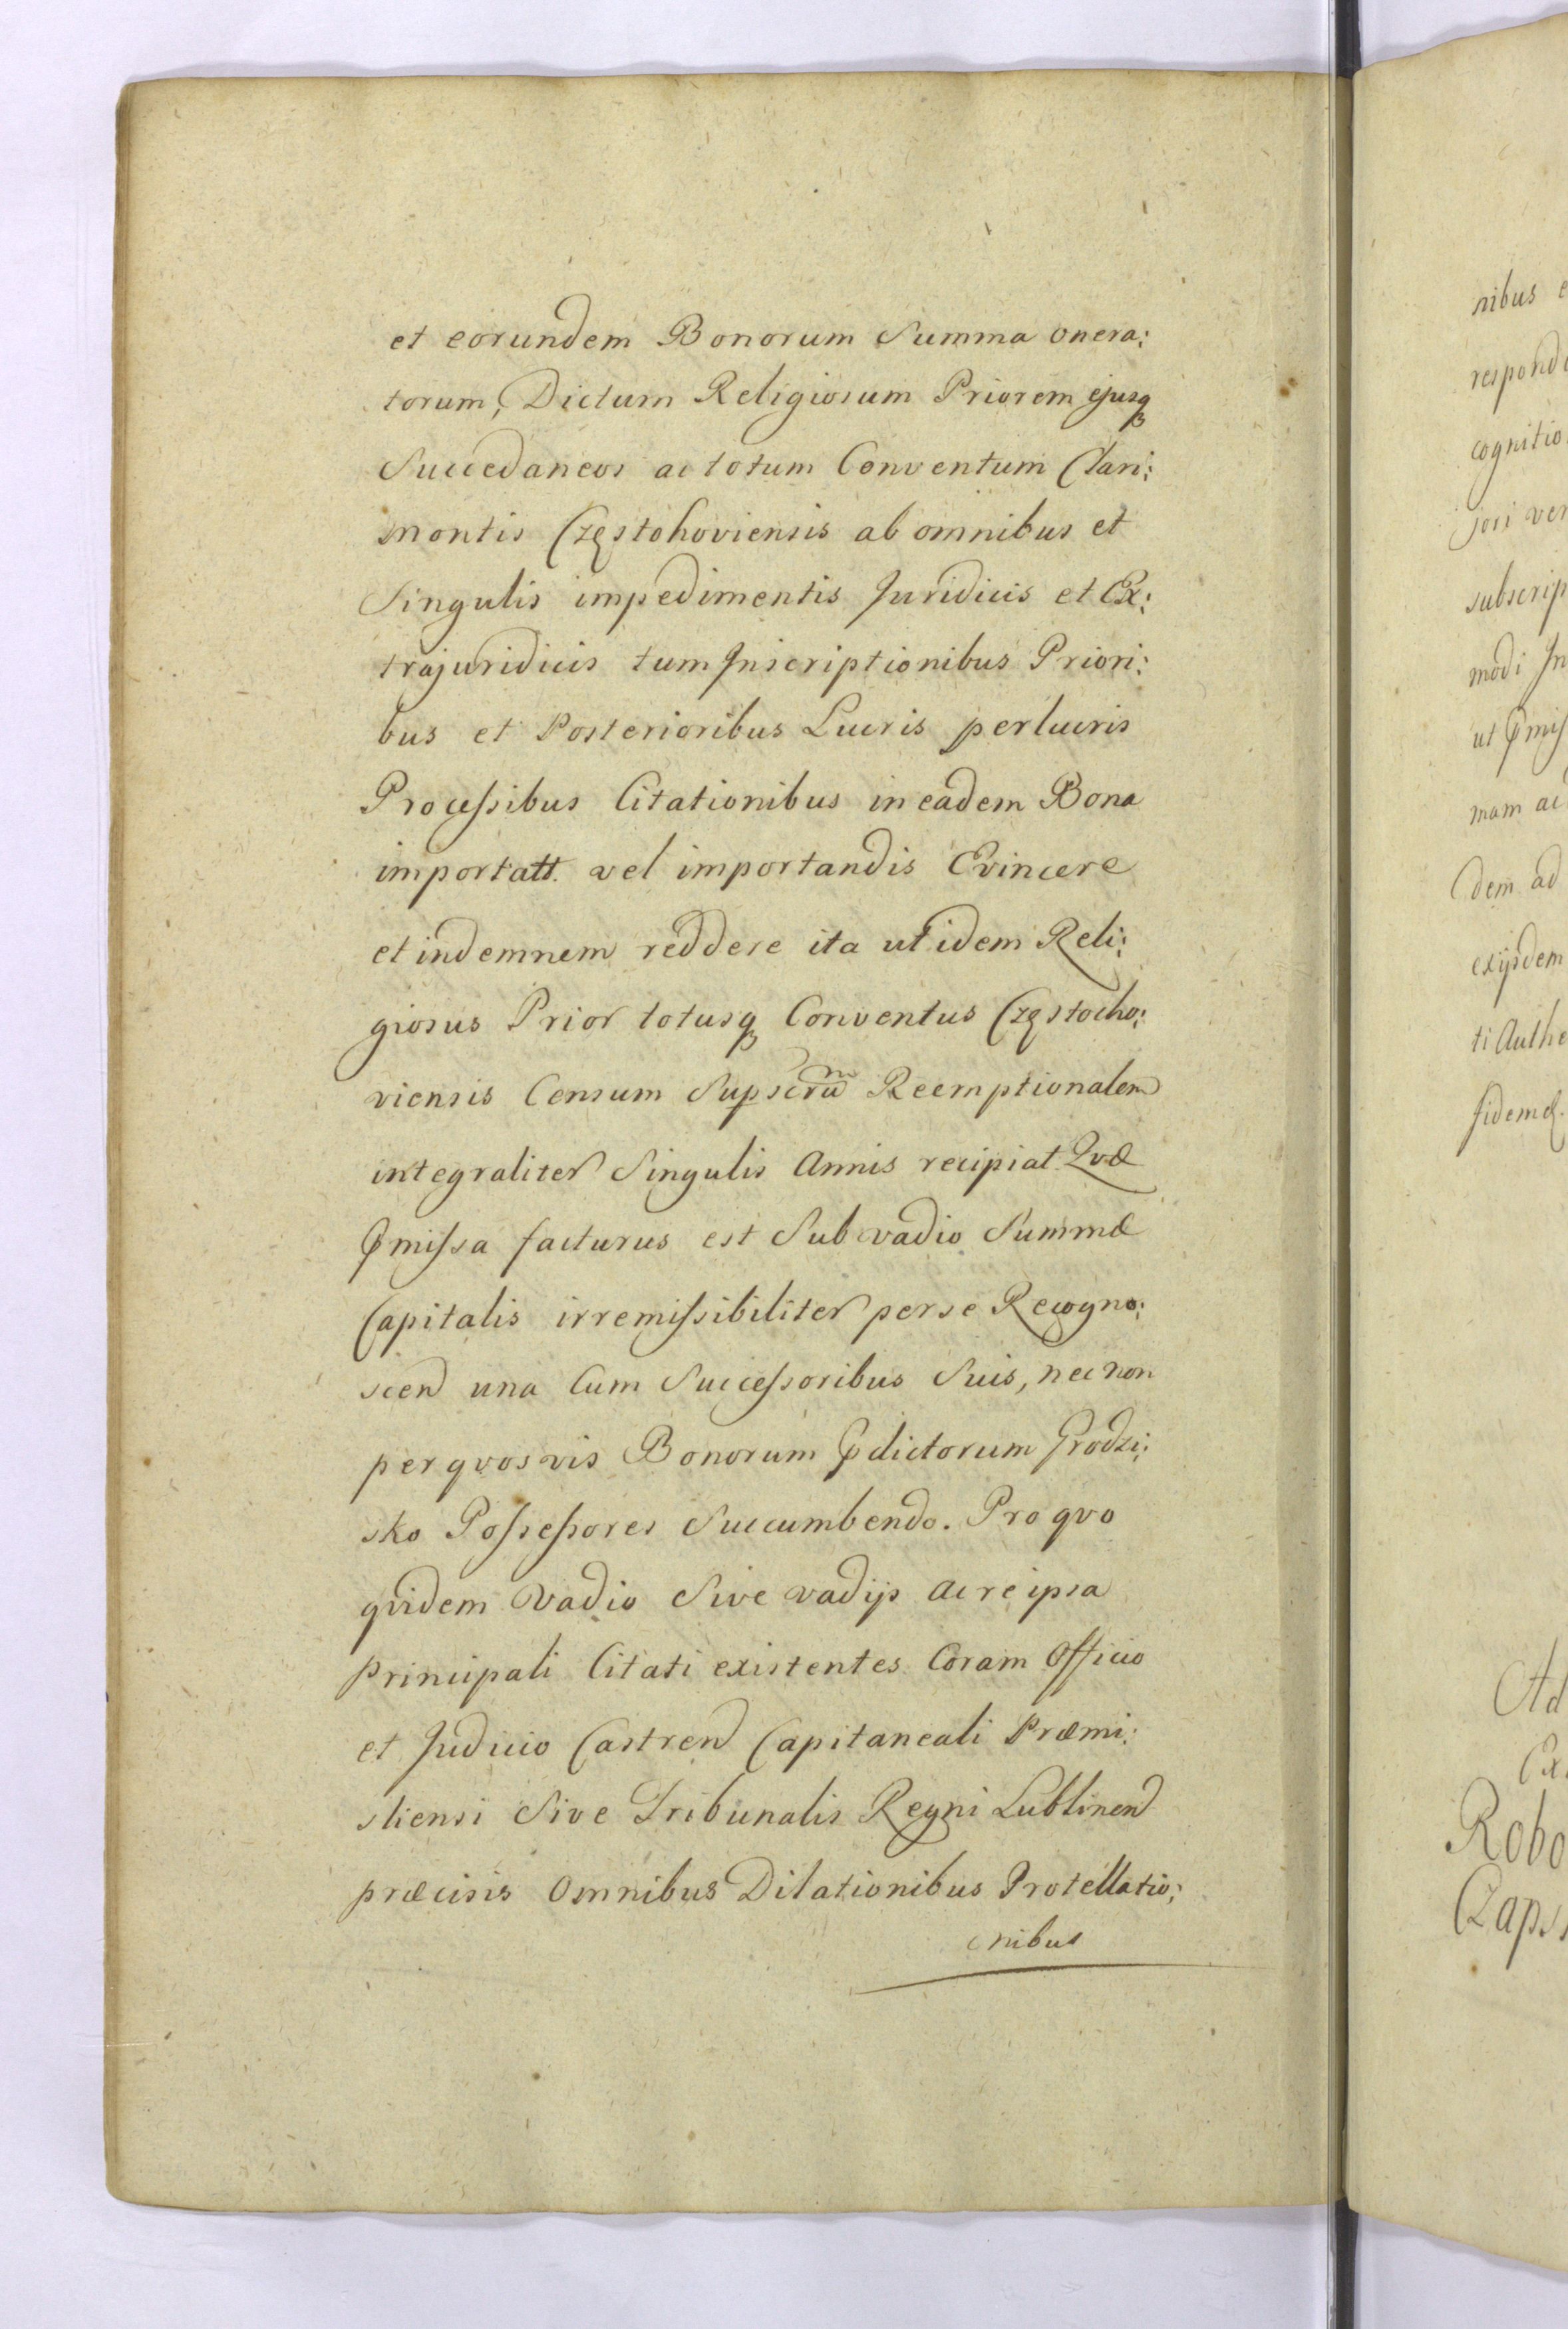 et eorundem Bonorum Summa onera:
torum, Dictum Religiosum Priorem ejusq
Succedaneos ac totum Conventum Clari:
montis Częstohoviensis ab omnibus et
Singulis impedimentis Juridicis et Ex:
trajuridicis tum Inscriptionibus Priori:
bus et Posterioribus Lucris perlucris
Processibus Citationibus in eadem Bona
importatt. vel importandis Evincere
et indemnem reddere ita ut idem Reli:
giosus Prior totusq Conventus Częstocho:
viensis Censum Supscrum Reemptionalem
integraliter Singulis Annis recipiat Qvæ
Pmissa facturus est Sub vadio Summæ
Capitalis irremissibiliter per se Recogno:
scen una Cum Successoribus Suis, nec non
per qvosvis Bonorum Pdictorum Grodzi:
sko Possessores Succumbendo. Pro qvo
qvidem Vadio Sive vadijs ac re ipsa
Principali Citati existentes Coram Officio
et Judicio Castren Capitaneali Præmi:
sliensi Sive Tribunalis Regni Lublinen
præcisis Omnibus Dilationibus Protellatio:
nibus
nibus
respond
cognitio
jori ver
subscrip
modi In
ut Pmiss
mam ac
dem ad
exijsdem
ti Authe
fidemq.
Ad
Ex
Robo
Zaps